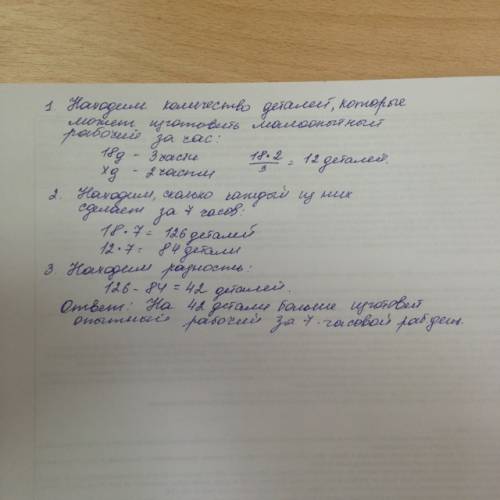 1. Находим количество деталей, которые
может изготовить малоопытный
рабочий за час:
18д - 3 части 18•2/3 = 12 деталей.
xд - 2 части
2. Находим, сколько каждый из них
сделает за 7 часов:
18•7 = 126 деталей
12•7 = 84 детали
3. Находим разность:
126 - 84 = 42 деталей.
Ответ: На 42 детали больше изготовит
опытный рабочий за 7-часовой раб день.